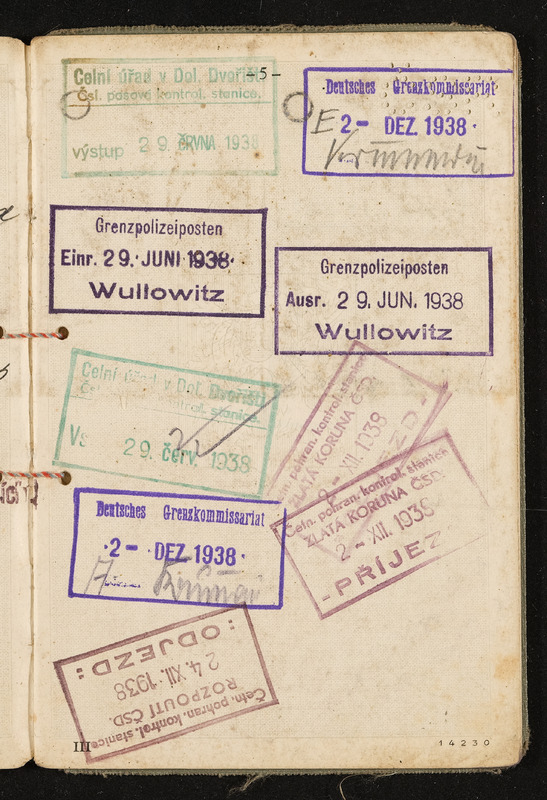 -5-
Celní úřad v Dol. Dvořišti
Čsl. pasová kontrol. stanice.
výstup 29. ČRVNA 1938
Deutsches Grenzkommissariat
E 2- DEZ. 1938
Grenzpolizeiposten
Einr. 29. JUNI 1938
Wullowitz
Grenzpolizeiposten
Ausr. 29. JUN. 1938
Wullowitz
Celní úřad v Dol. Dvořišti
Čsl. kontrol. stanice.
29. červ. 1938
pohran. kontrol. stanice
ZLATÁ KORUNA ČSD.
2 - XII. 1938
Četn. pohran. kontrol. stanice
ZLATÁ KORUNA ČSD.
2 - XII. 1938
- PŘÍJEZ
Deutsches Grenzkommissariat
2- DEZ. 1938
A
Četn. pohran. kontrol. stanice
ROZPOUTÍ ČSD.
24. XII. 1938
: ODJEZD :
III
14230